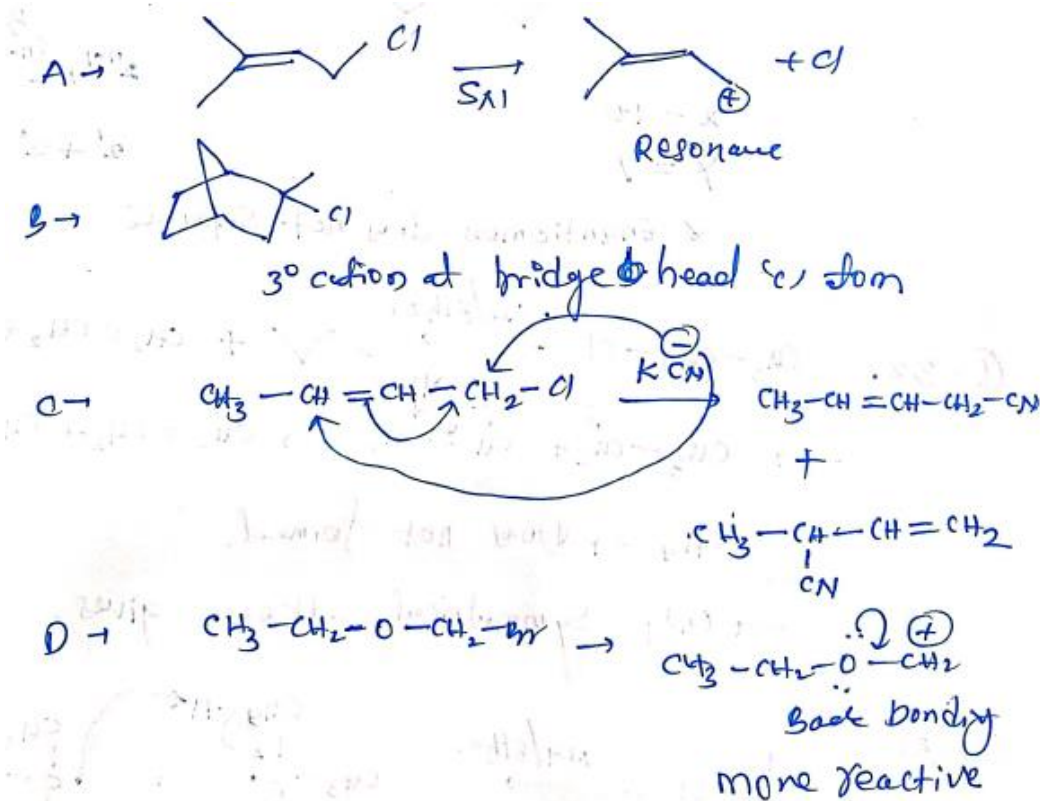 A → Cl SN1 ⊕ + Cl
Resonance
B → Cl
3° cation at bridge head 'c' atom
C → CH3 — CH = CH — CH2 — Cl K CN⊖ CH3–CH=CH–CH2–CN
+
CH3 — CH — CH = CH2
CN
D → CH3–CH2–O–CH2–Br → CH3–CH2–O–CH2 ⊕
Back bonding
more reactive